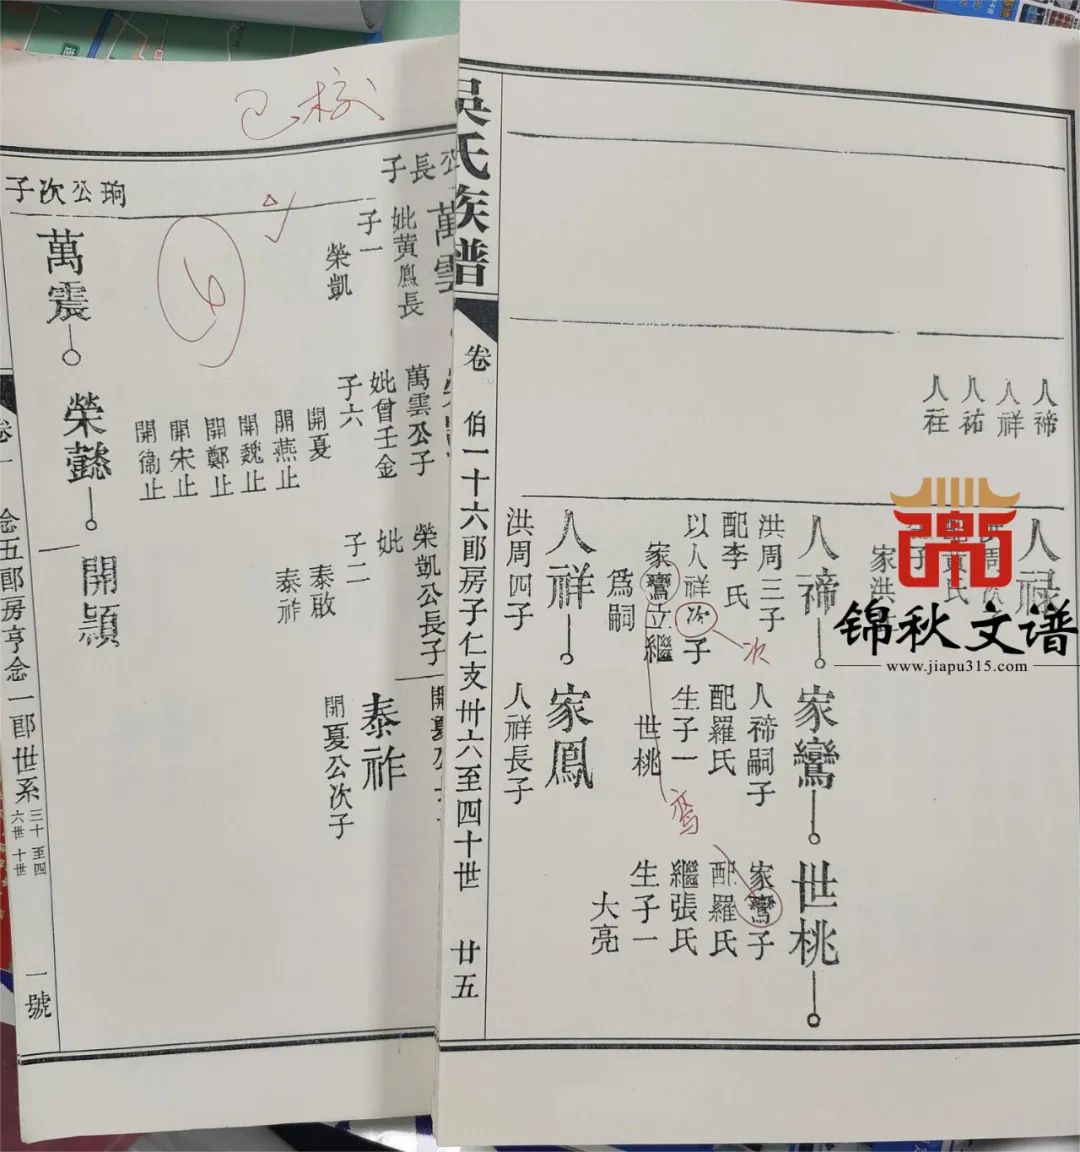 已校
吳氏族譜
卷
伯一十六郎房子仁支卅六至四十世
廿五
人禘
人祥
人祐
人社
人禄
人禘
洪周三子
配李氏
以人祥次子
家鸞立繼
爲嗣
次
家鸞
人禘嗣子
配羅氏
生子一
世桃
鸾
世桃
家鸞子
配羅氏
繼張氏
生子一
大亮
人祥
洪周四子
家鳳
人祥長子
長子
萬雲
妣黃鳳長
子一
榮凱
萬雲公子
妣曾壬金
子六
開夏
開燕止
開魏止
開鄭止
開宋止
開衞止
榮凱公長子
妣
子二
泰啟
泰祚
泰祚
開夏公次子
珦公次子
萬震
榮懿
開顯
念五郎房亨念一郎世系
三十六世至四十世
一號
锦秋文谱
www.jiapu315.com